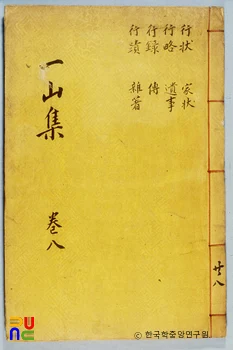 行狀 家狀
行略 遺事
行錄 傳
行蹟 雜著
一山集
卷八
共八
FUNC
© 한국학중앙연구원